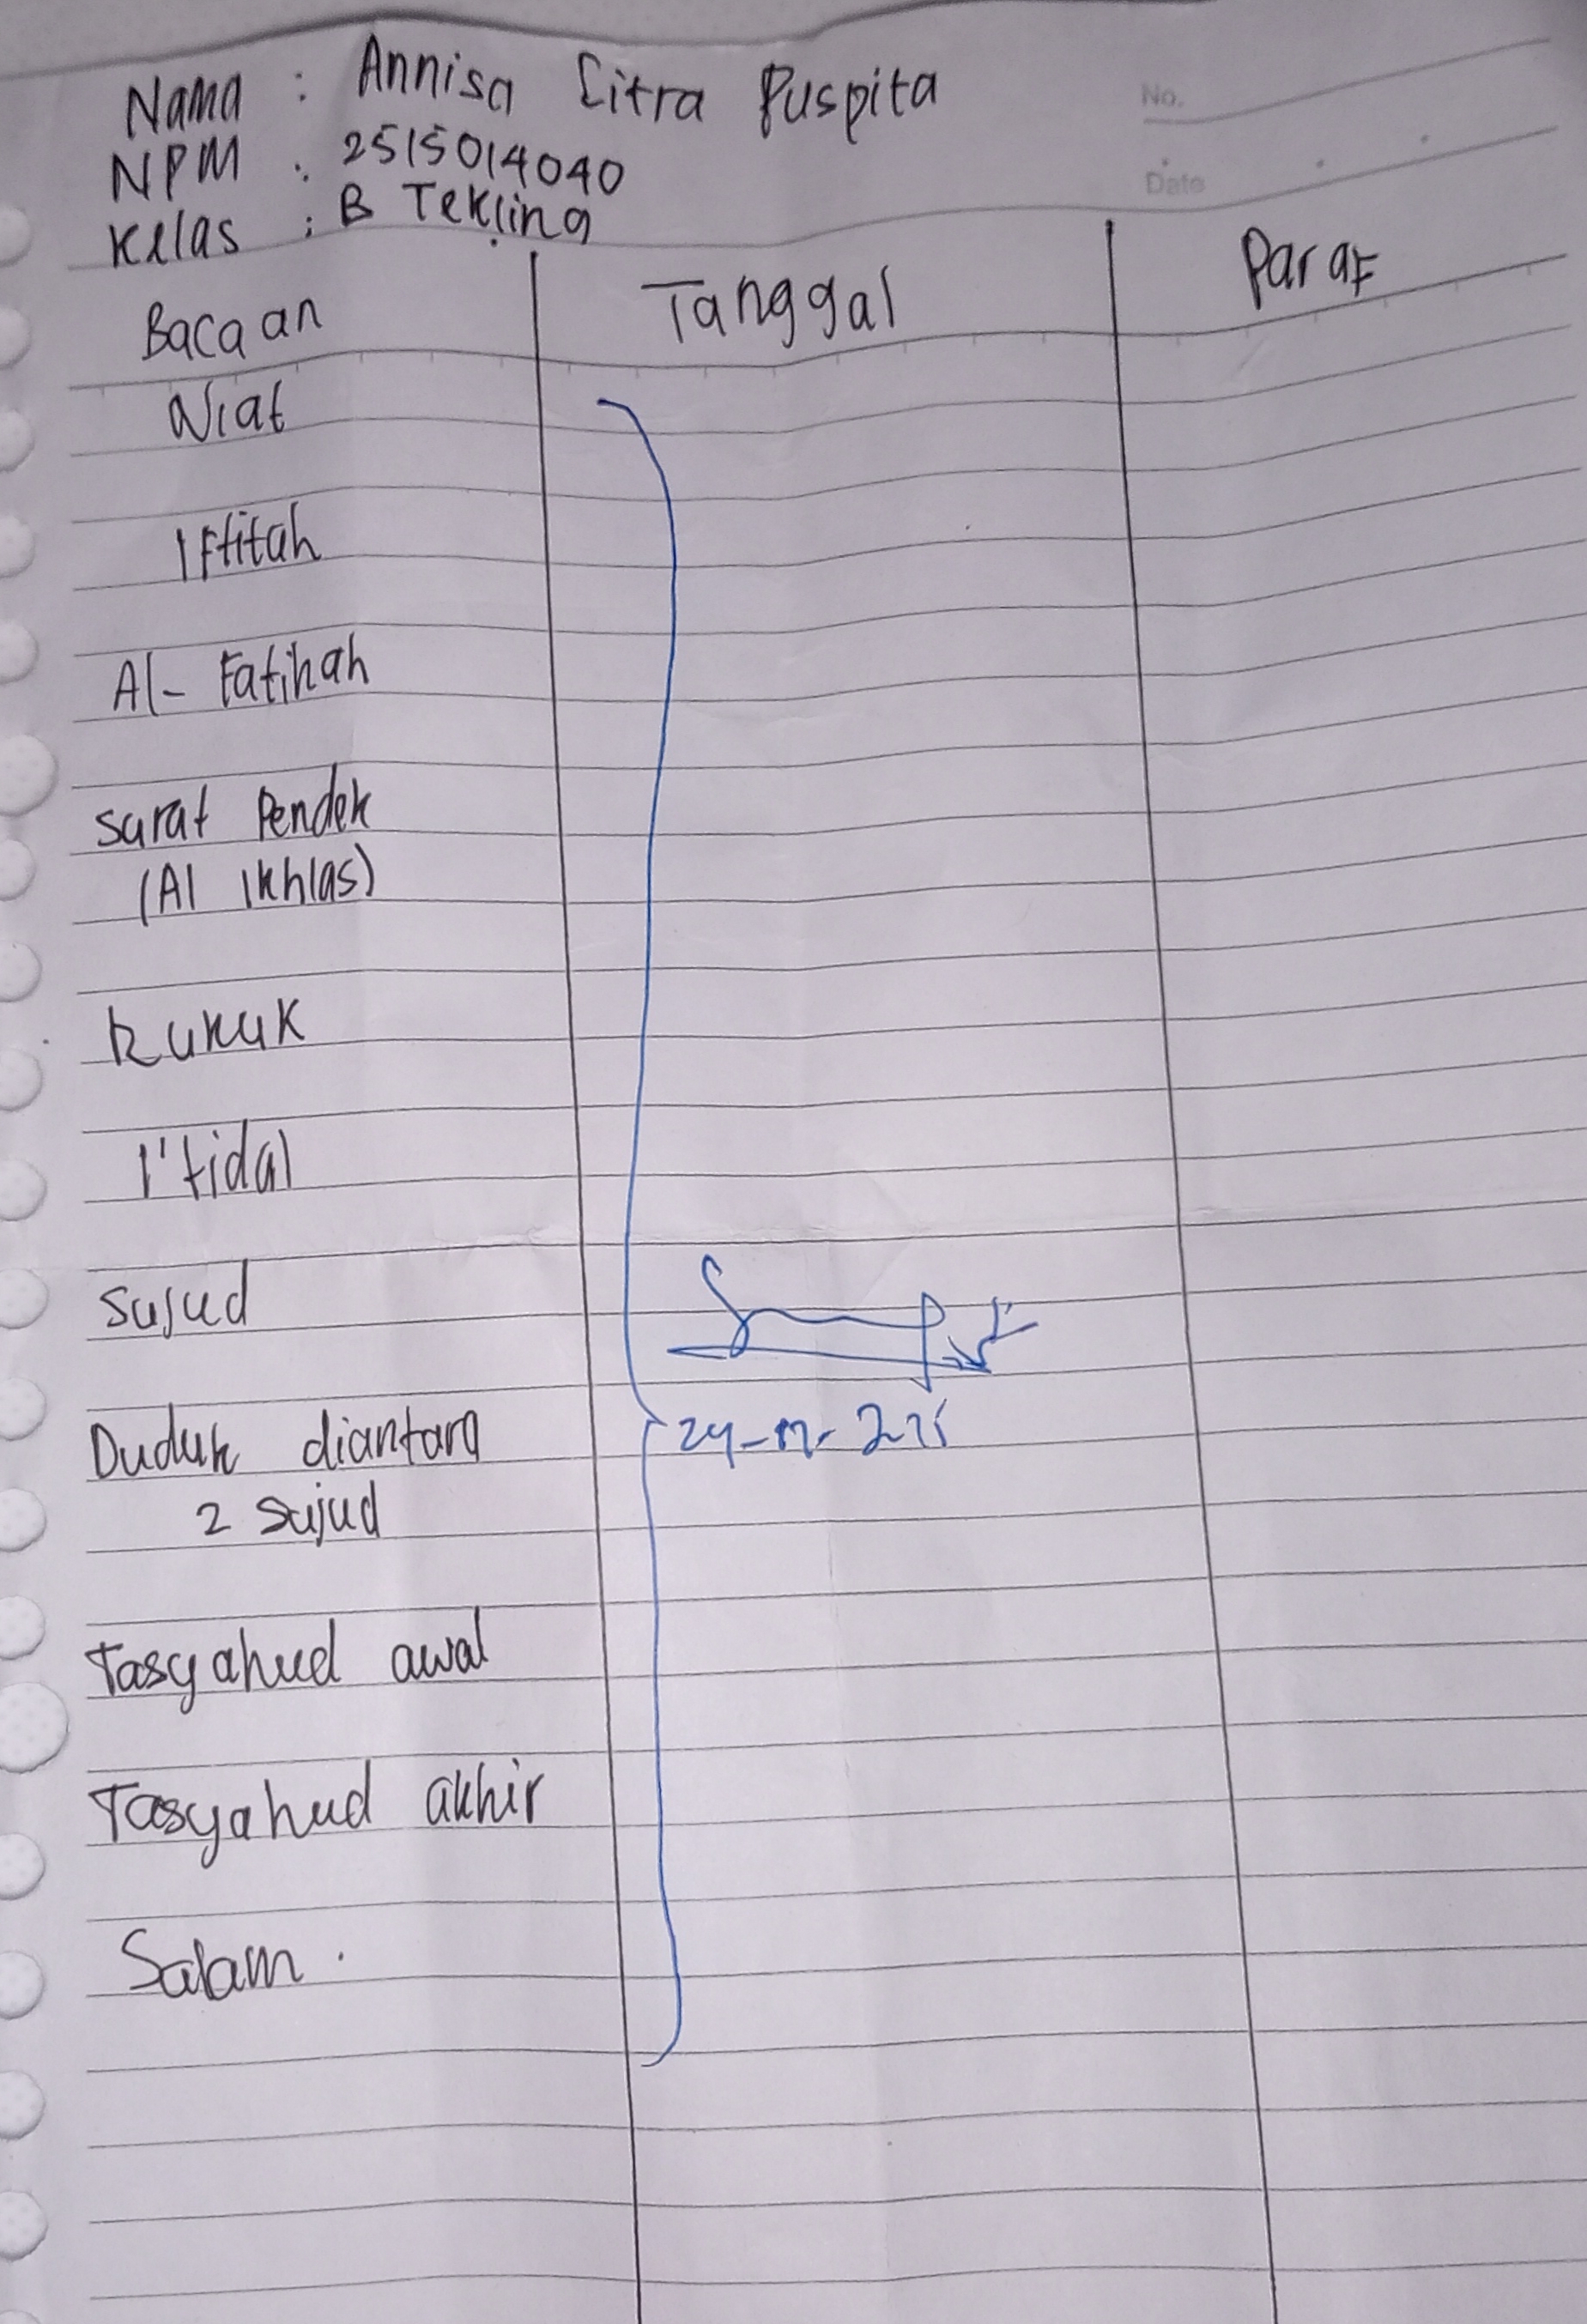 Nama : Annisa Citra Puspita
No.
NPM : 2515014040
Date
Kelas : B Tekling
Bacaan Tanggal Paraf
Niat
Iftitah
Al-Fatihah
Surat Pendek
(Al Ikhlas)
Rukuk
I'tidal
Sujud
Duduk diantara
2 Sujud
Tasyahud awal
Tasyahud akhir
Salam.